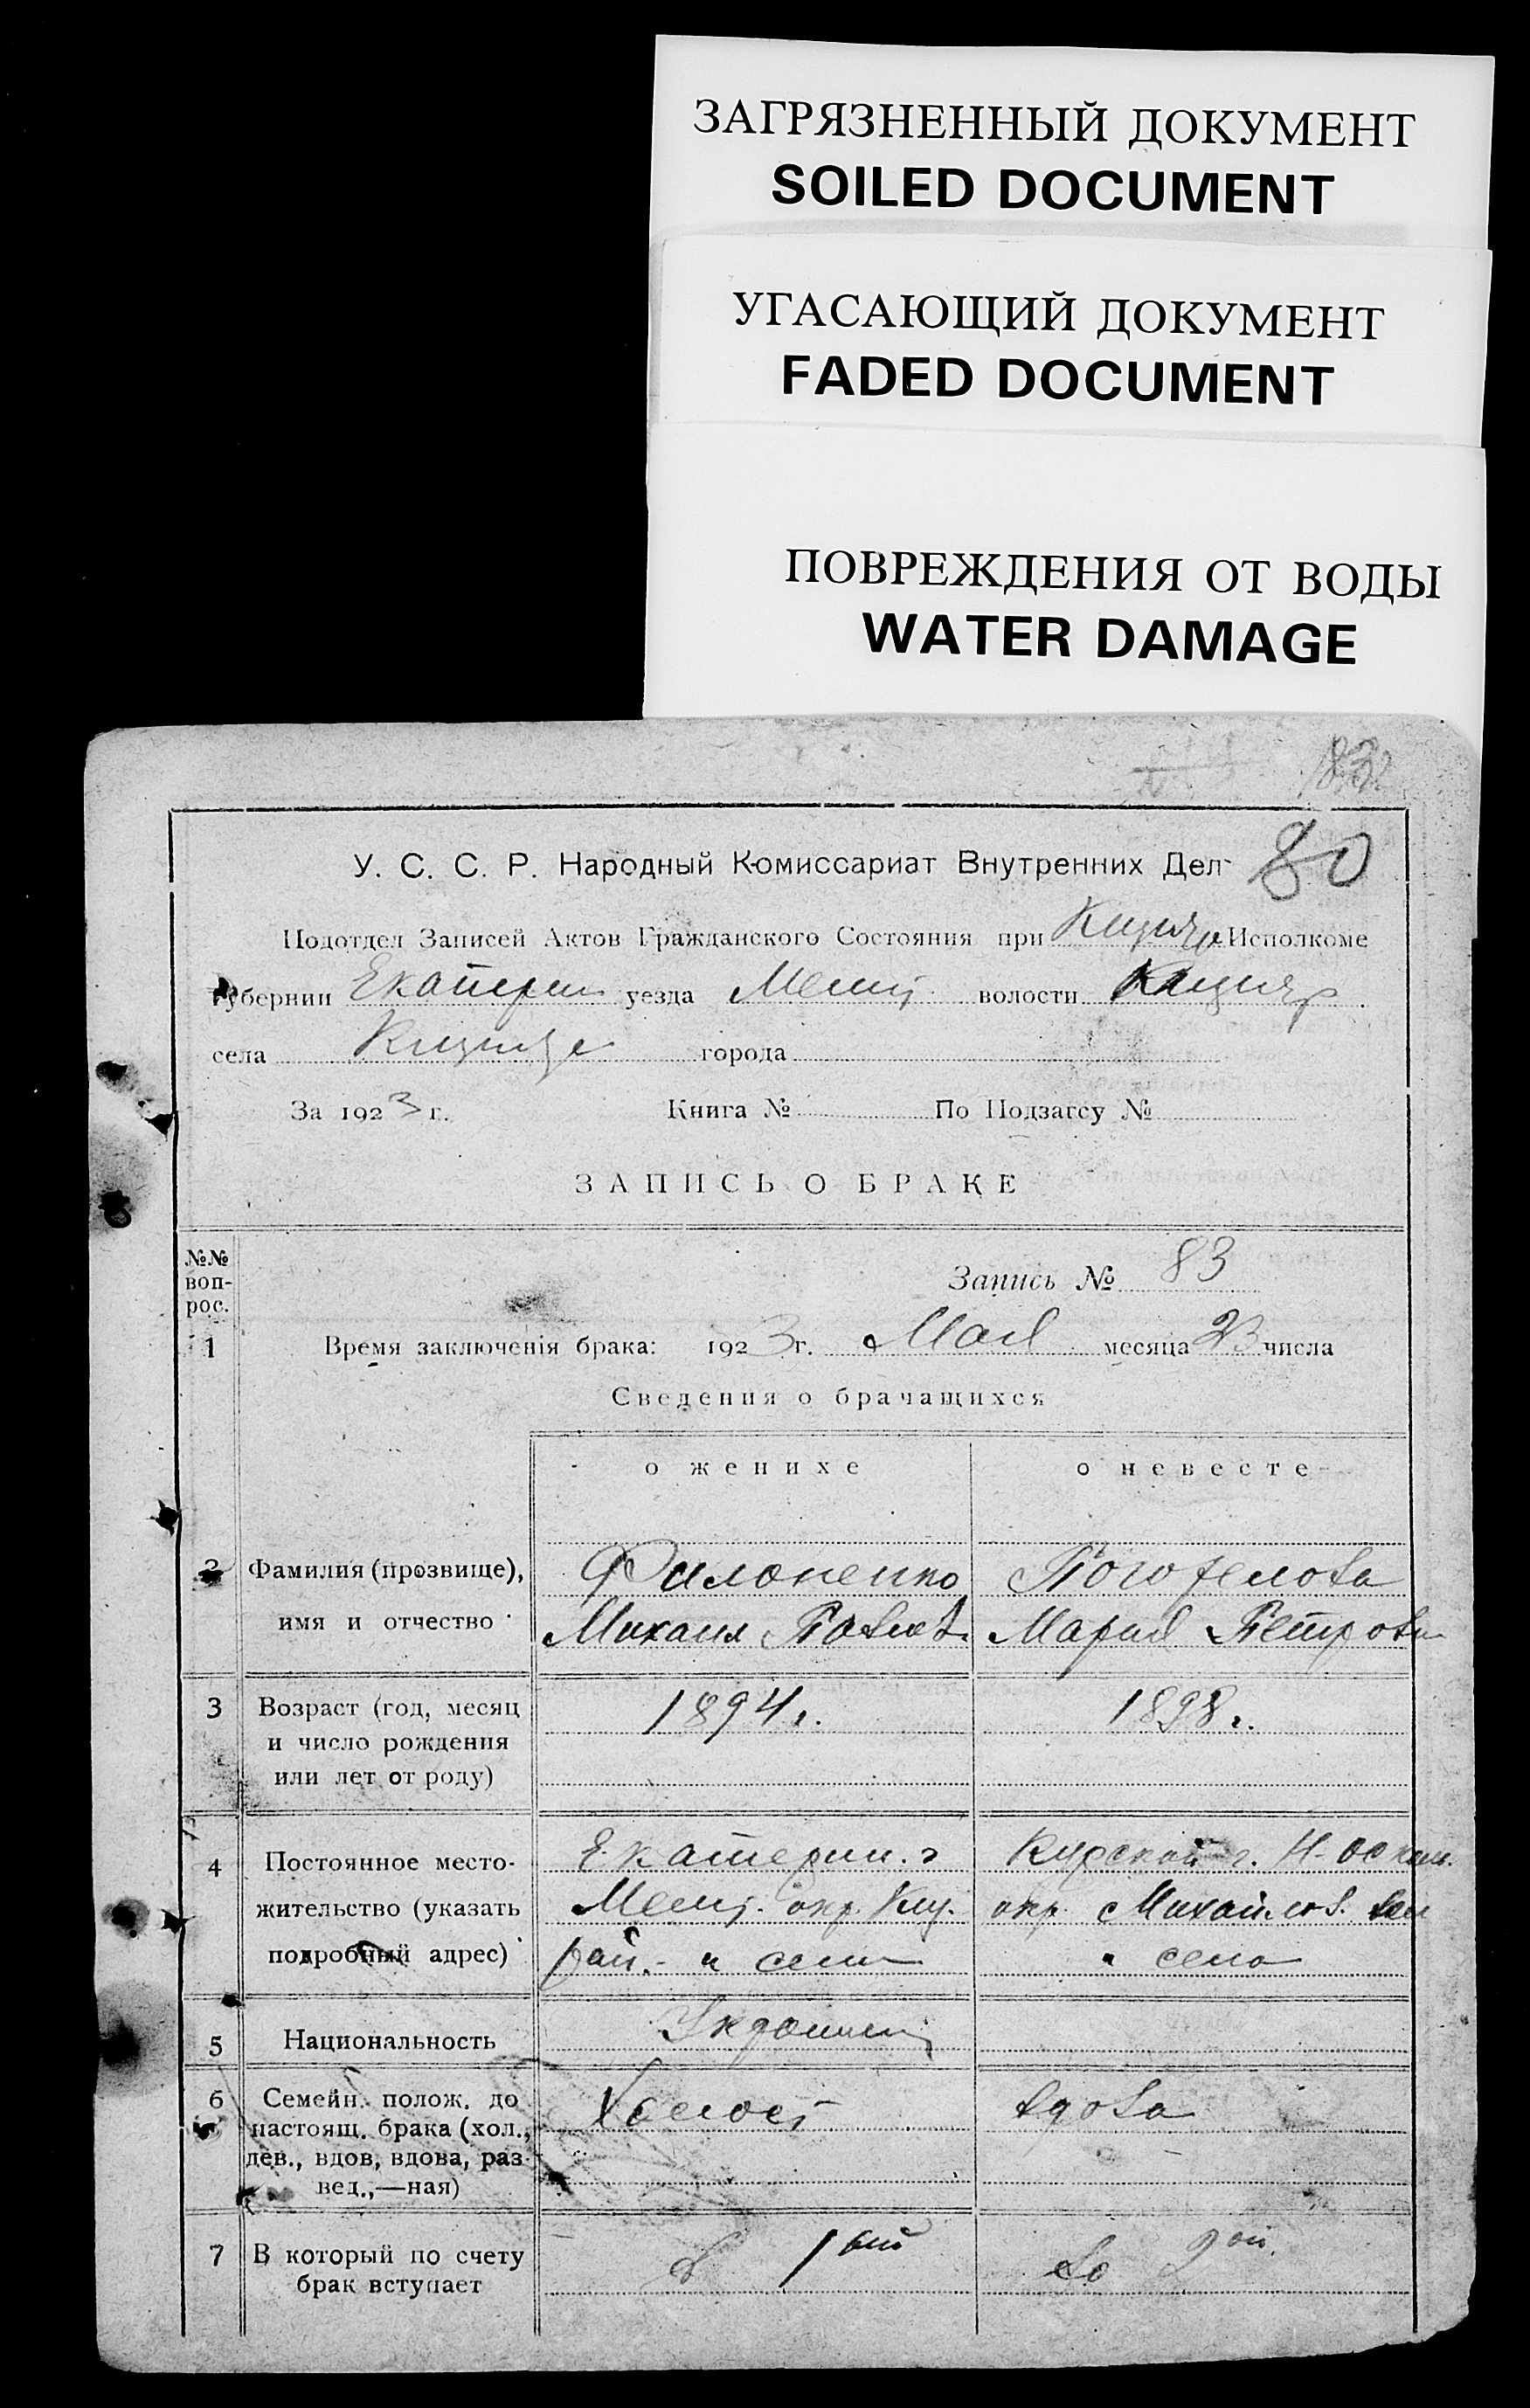 ЗАГРЯЗНЕННЫЙ ДОКУМЕНТ
SOILED DOCUMENT
УГАСАЮЩИЙ ДОКУМЕНТ
FADED DOCUMENT
ПОВРЕЖДЕНИЯ ОТ ВОДЫ
WATER DAMAGE
80
У. С. С. Р. Народный Комиссариат Внутренних Дел
Подотдел Записей Актов Гражданского Состояния при Исполкоме
губернии Екатерин уезда волости
села города
За 1923 г. Книга № По Подзагсу №
ЗАПИСЬ О БРАКЕ
№№ воп-рос.
Запись № 83
1 Время заключенія брака: 1923 г. Мая месяца 23 числа
Сведения о брачащихся
о женихе о невесте
2 Фамилия (прозвище), имя и отчество
Филоненко
Михаил Павлов.
Мария Петровн
3 Возраст (год, месяц и число рождения или лет от роду)
1894 г. 1898 г.
4 Постоянное место-жительство (указать подробный адрес)
Екатерин. г
окр.
рай. - " села
Курской г. Н-Оскол.
окр. Михайлов.
" село
5 Национальность
6 Семейн. полож. до настоящ. брака (хол., дев., вдов, вдова, раз-вед.,—ная)
Холост вдова
7 В который по счету брак вступает
в 1ый во 2ой.